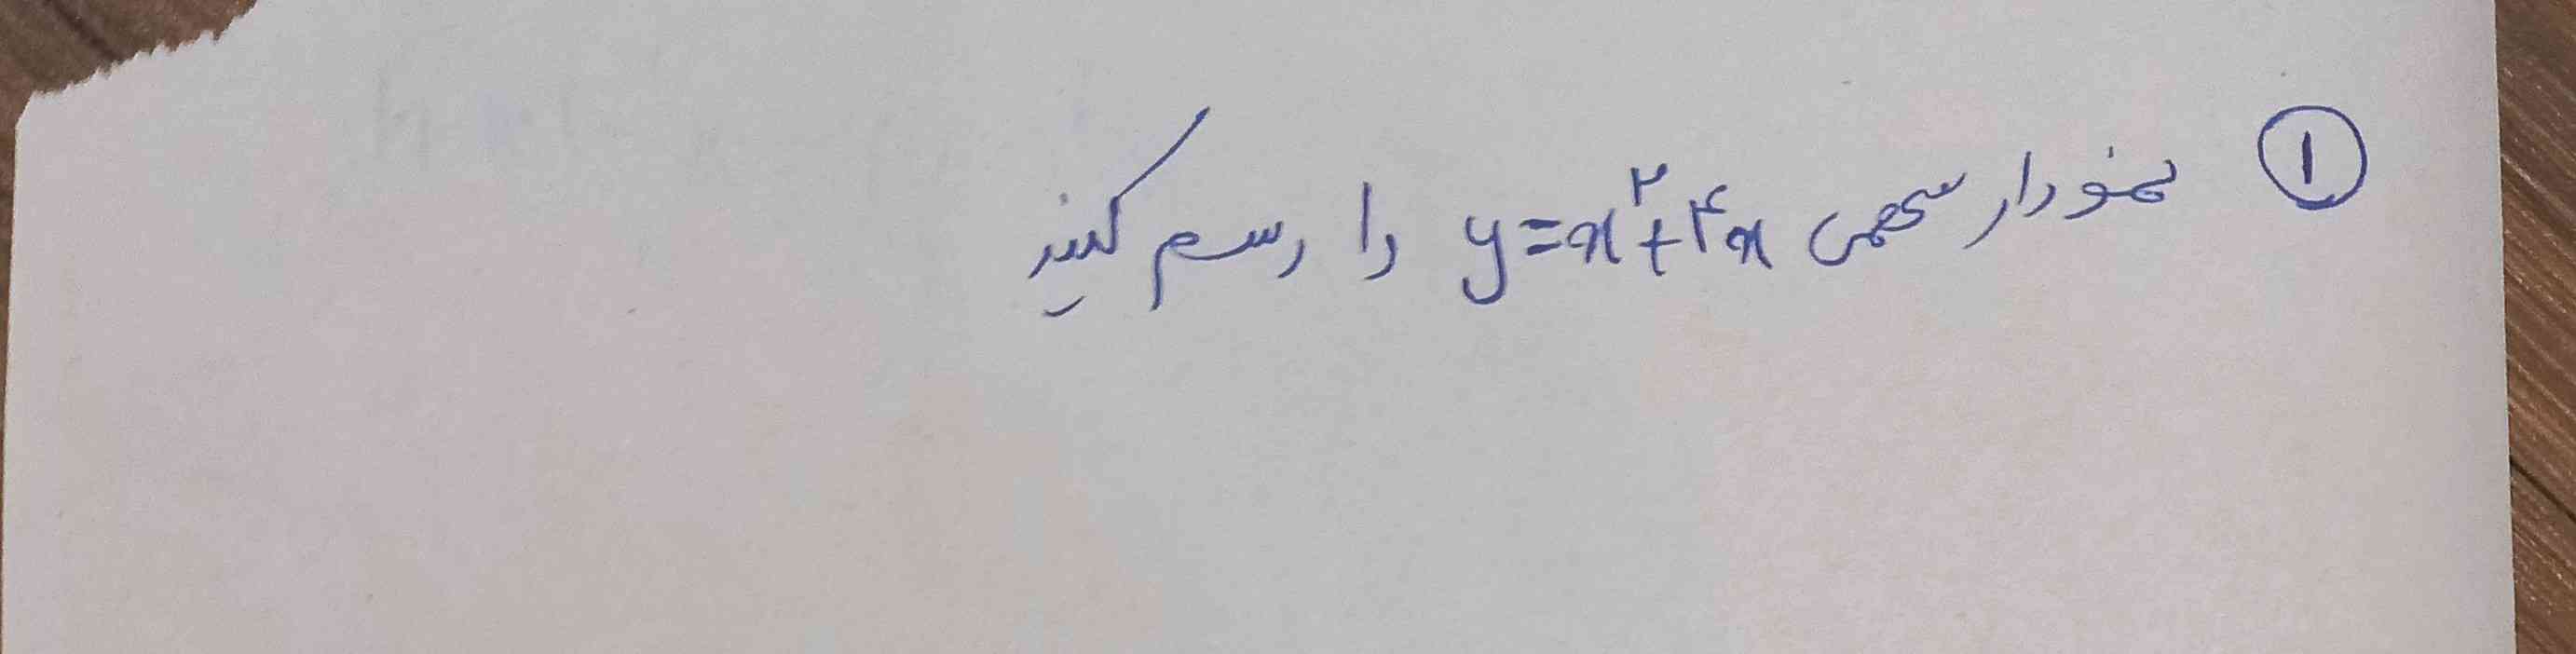 ① نمودار سهمی y=x²+۴x را رسم کنید